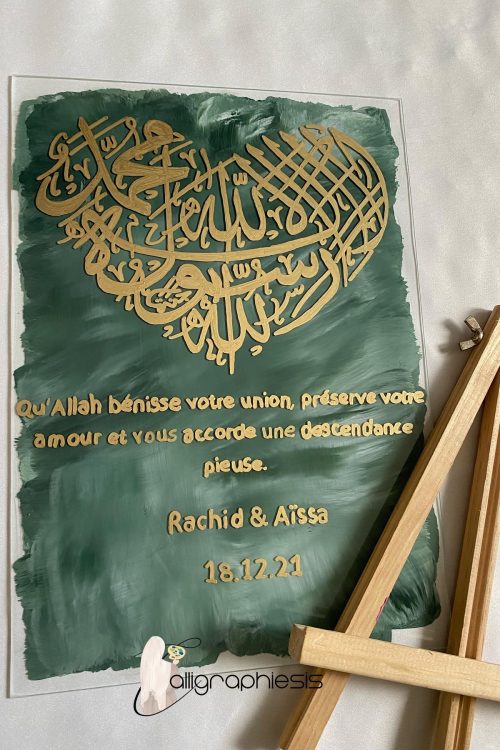 لا إله إلا الله محمد رسول الله
Qu'Allah bénisse votre union, préserve votre
amour et vous accorde une descendance
pieuse.
Rachid & Aïssa
18.12.21
alligraphiesis